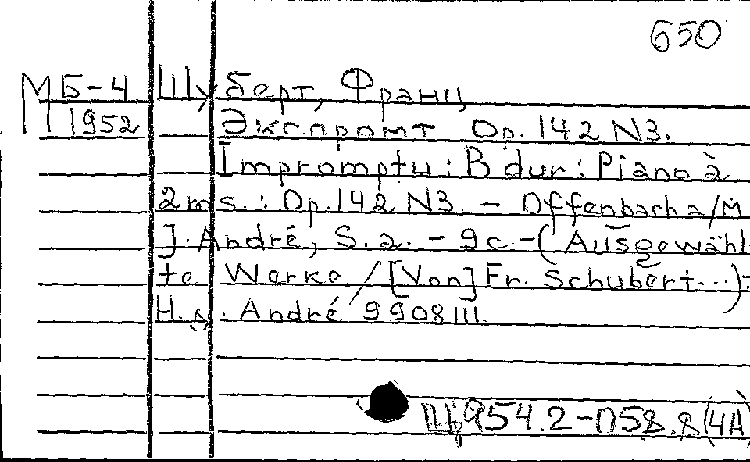 650
МБ-4 Шуберт, Франц
1952 Экспромт Op. 142 N3.
Impromptu: B dur: Piano à
2ms.: Op. 142 N3. - Offenbach a/M
J. André, S.a. - 9c. - (Ausgewähl-
te Werke / [Von] Fr. Schubert...).
Н.д. André 9908III.
Щ954.2-П58.8(4А)